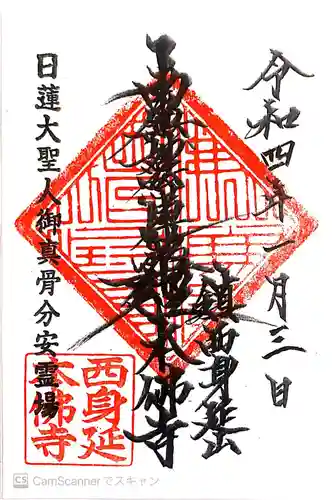 令和四年一月三日
鎮西身延
南無妙法蓮華経
本佛寺
日蓮大聖人御真骨分安霊場
西身延
本佛寺
CS CamScannerでスキャン